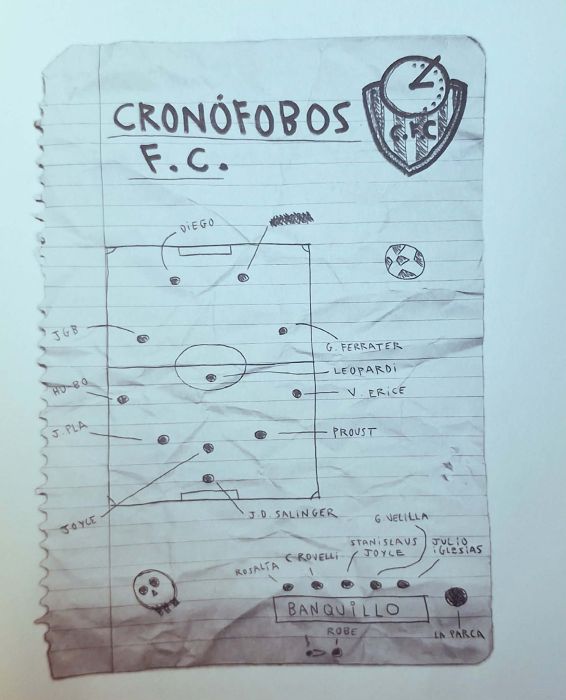 CRONÓFOBOS
F.C.
C.F.C
DIEGO
JGB
G. FERRATER
LEOPARDI
HU-BO
V. ERICE
J. PLA
PROUST
JOYCE
J.D. SALINGER
G. VELILLA
STANISLAUS
JOYCE
JULIO
IGLESIAS
C. ROVELLI
ROSALÍA
BANQUILLO
ROBE
LA PARCA